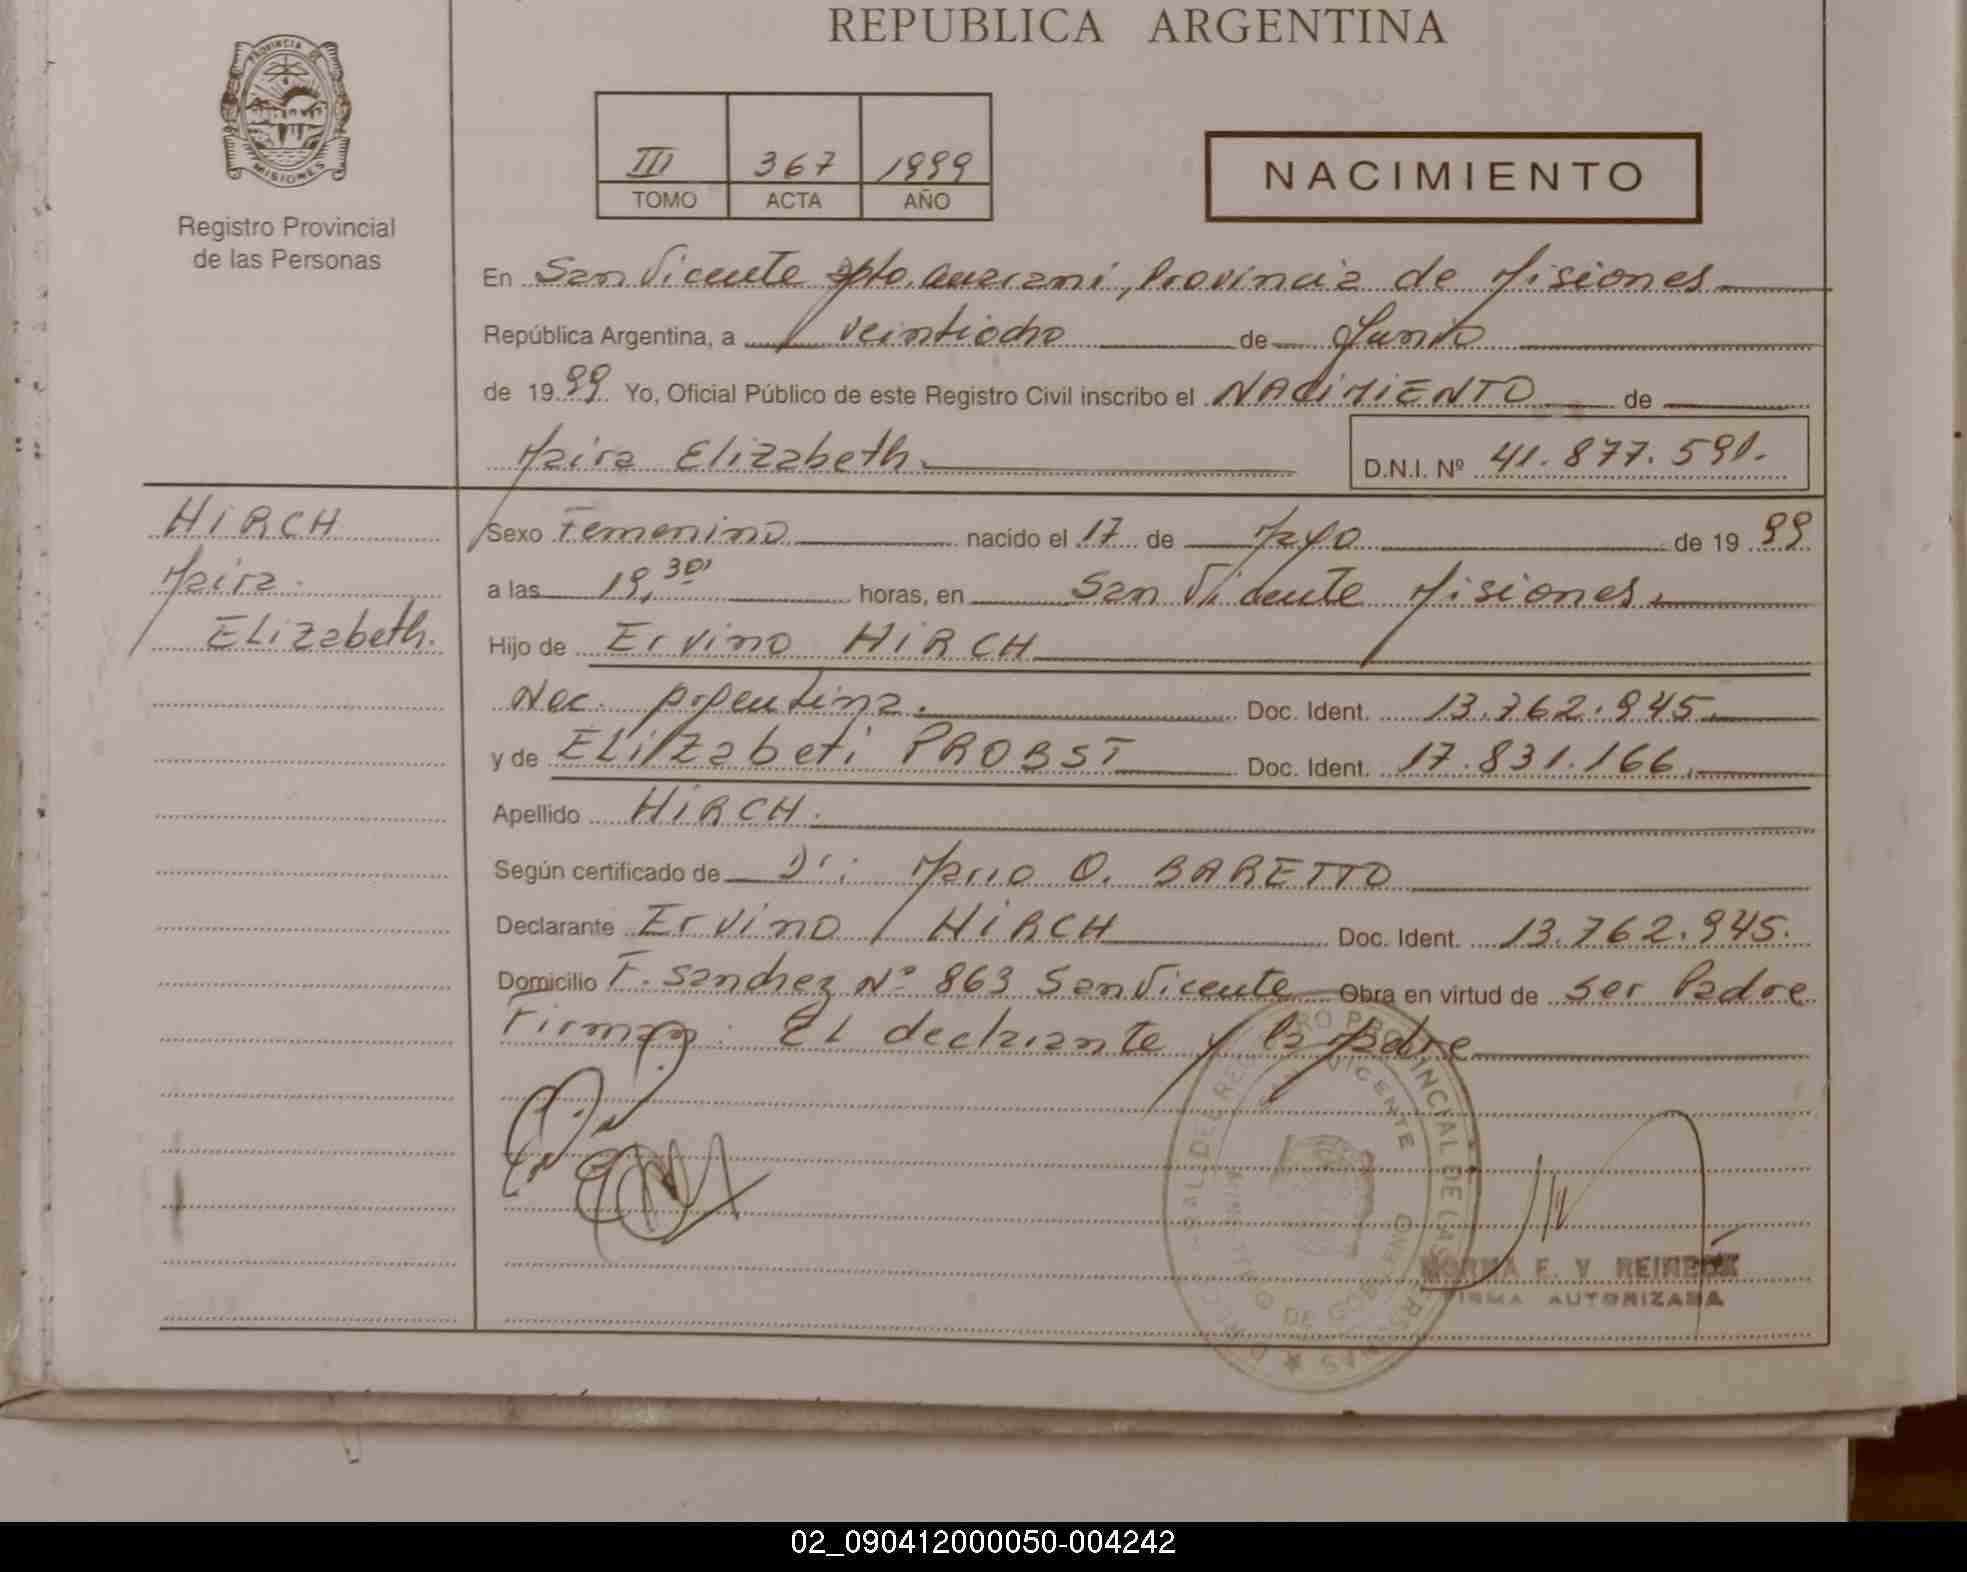 REPUBLICA ARGENTINA
PROVINCIA DE
MISIONES
Registro Provincial
de las Personas
III 367 1999
TOMO ACTA AÑO
NACIMIENTO
En San Vicente Dpto. Guarani, Provincia de Misiones
República Argentina, a veintiocho de Junio
de 1999 Yo, Oficial Público de este Registro Civil inscribo el NACIMIENTO de
Maira Elizabeth.
D.N.I. Nº 41.877.591.
HIRCH
Maira
ELizabeth.
Sexo Femenino nacido el 17 de Mayo de 1999
a las 19,30' horas, en San Vicente Misiones.
Hijo de Ervino HIRCH
Nac. Argentina. Doc. Ident. 13.762.945.
y de ELizabeti PROBST Doc. Ident. 17.831.166.
Apellido HIRCH.
Según certificado de Dr: Mario O. BARETTO
Declarante Ervino HIRCH Doc. Ident. 13.762.945.
Domicilio F. Sanchez Nº 863 San Vicente Obra en virtud de ser Padre
Firman: EL declarante y la Madre
REGISTRO PROVINCIAL DE LAS PERSONAS
VICENTE
DE GOBIERNO
NORMA E. V. REINECK
FIRMA AUTORIZADA
02_090412000050-004242